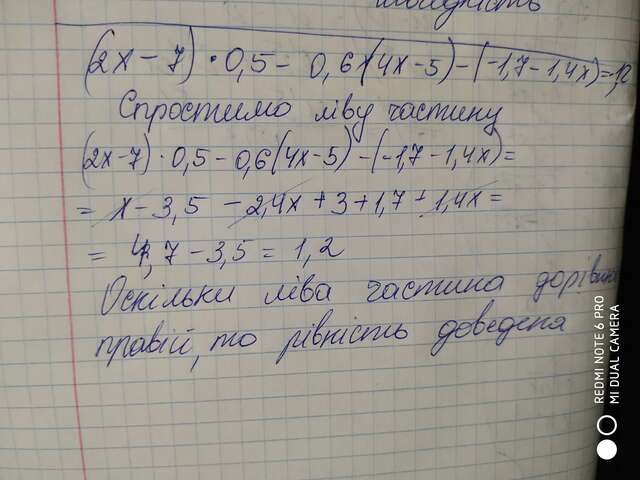 (2x - 7) · 0,5 - 0,6(4x - 5) - (-1,7 - 1,4x) = 1,2
Спростимо ліву частину
(2x - 7) · 0,5 - 0,6(4x - 5) - (-1,7 - 1,4x) =
= x - 3,5 - 2,4x + 3 + 1,7 + 1,4x =
= 4,7 - 3,5 = 1,2
Оскільки ліва частина
правій, то рівність доведена
REDMI NOTE 6 PRO
MI DUAL CAMERA